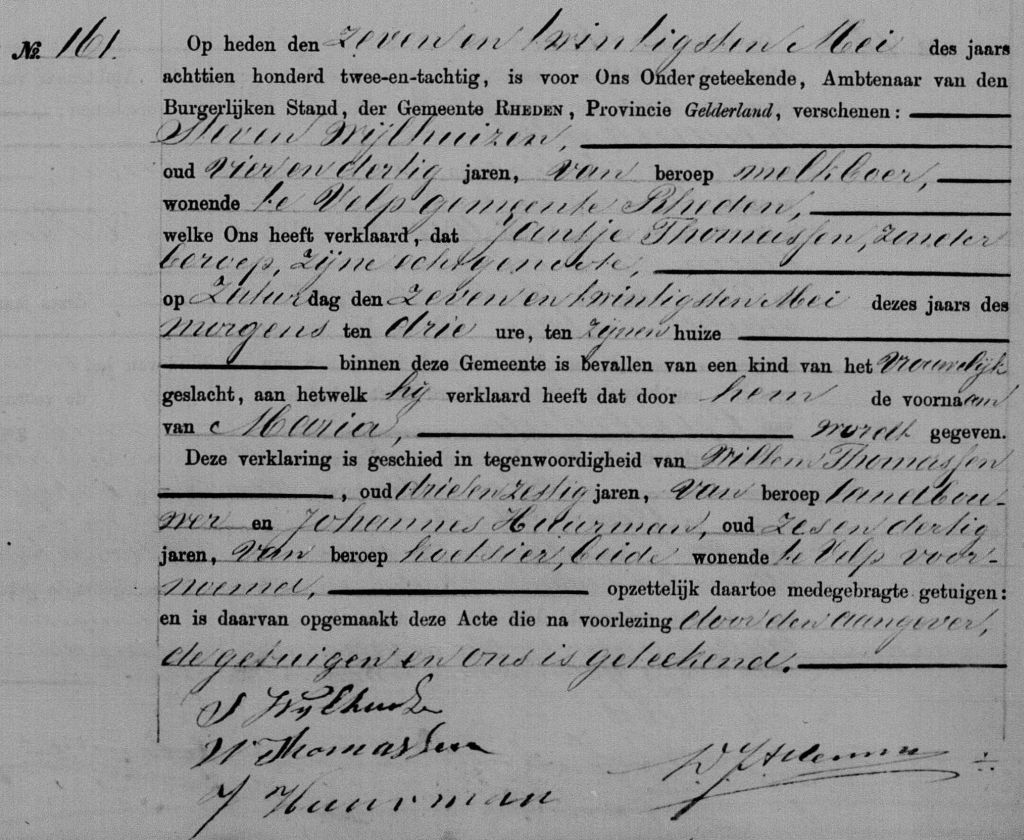 No. 161. Op heden den zeven en twintigsten Mei des jaars
achttien honderd twee-en-tachtig, is voor Ons Ondergeteekende, Ambtenaar van den
Burgerlijken Stand, der Gemeente RHEDEN, Provincie Gelderland, verschenen:
Steven Wijlhuizen,
oud vier en dertig jaren, van beroep melkboer,
wonende te Velp gemeente Rheden,
welke Ons heeft verklaard, dat Jantje Thomassen, zonder
beroep, zijne echtgenoote,
op Zaturdag den zeven en twintigsten Mei dezes jaars des
morgens ten drie ure, ten zijnen huize
binnen deze Gemeente is bevallen van een kind van het vrouwelijk
geslacht, aan hetwelk hij verklaard heeft dat door hem de voornaam
van Maria, wordt gegeven.
Deze verklaring is geschied in tegenwoordigheid van Willem Thomassen
, oud drie en zestig jaren, van beroep landbou-
wer en Johannes Huurman, oud zes en dertig
jaren, van beroep koetsier, beide wonende te Velp voor-
noemd, opzettelijk daartoe medegebragte getuigen:
en is daarvan opgemaakt deze Acte die na voorlezing door den aangever,
de getuigen en ons is geteekend.
S Wijlhuize
W Thomassen
J Huurman